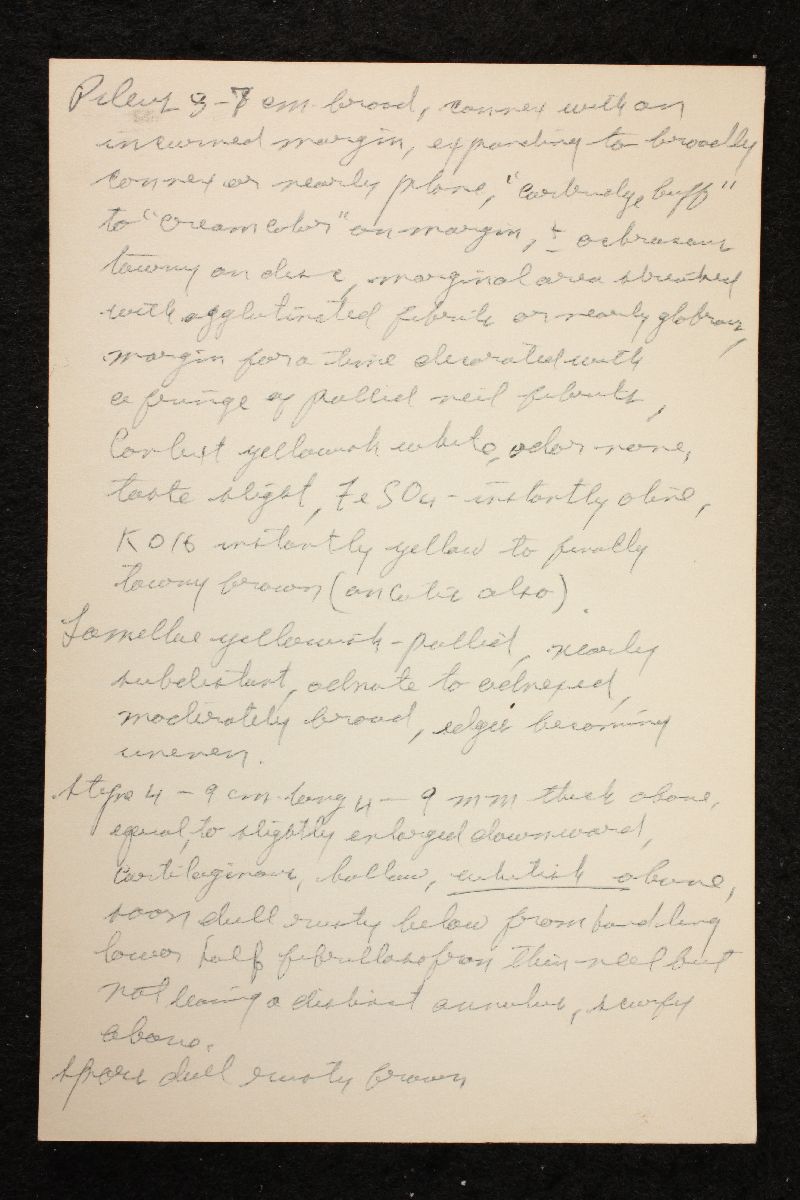 Pileus 3-7 cm broad, convex with an
incurved margin, expanding to broadly
convex or nearly plane, "cartridge buff"
to "cream color" on margin, ± ochraceous
tawny on disc, marginal area streaked
with agglutinated fibrils or nearly glabrous,
margin for a time decorated with
a fringe of pallid veil fibrils,
Context yellowish white, odor none,
taste slight, FeSO4 - instantly olive,
KOH instantly yellow to finally
tawny brown (on cutis also).
Lamellae yellowish-pallid, nearly
subdistant, adnate to adnexed,
moderately broad, edges becoming
uneven.
Stipe 4 - 9 cm long 4 - 9 mm thick above,
equal, to slightly enlarged downward,
cartilaginous, hollow, whitish above,
soon dull rusty below from handling
lower half fibrillose from thin veil but
not leaving a distinct annulus, scurfy
above.
Spores dull rusty brown